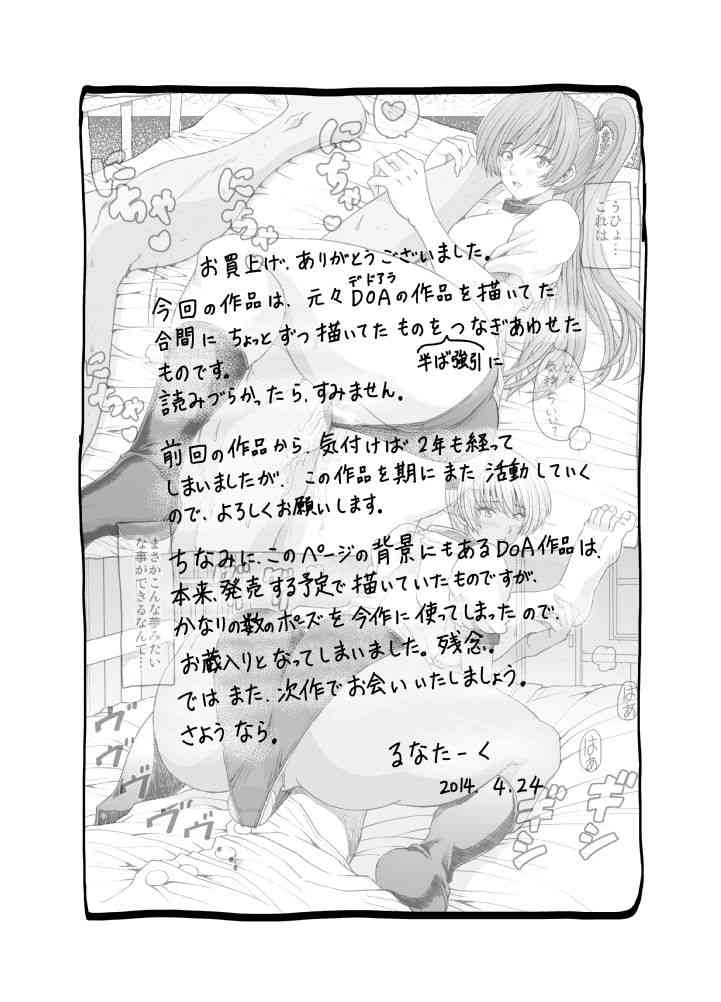 お買上げ、ありがとうございました。
今回の作品は、元々DOAの作品を描いてた
デドアラ
合間にちょっとずつ描いてたものをつなぎあわせた
半ば強引に
ものです。
読みづらかったら、すみません。
前回の作品から、気付けば2年も経って
しまいましたが、この作品を期にまた活動していく
ので、よろしくお願いします。
ちなみに、このページの背景にもあるDOA作品は、
本来、発売する予定で描いていたものですが、
かなりの数のポーズを今作に使ってしまったので、
お蔵入りとなってしまいました。残念。
ではまた、次作でお会いいたしましょう。
さようなら。
るなたーく
2014. 4.24
うひょ…
これは
にちゃ
にちゃ
にちゃ
まさかこんな夢みたい
な事ができるなんて…
はあ
はあ
ギシ
ギシ
ヴヴ
ヴヴ